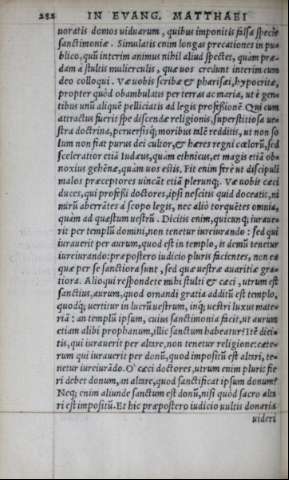 252 IN EVANG. MATTHAEI
uoratis domos uiduarum, quibus imponitis falsa specie
sanctimoniæ. Simulatis enim longas precationes in pu⸗
blico, quū interim animus nihil aliud spectet, quàm præ⸗
dam a stultis mulierculis, quæ uos credunt interim cum
deo colloqui. Væ uobis scribæ & pharisæi, hypocritæ,
propter quòd obambulatis per terras ac maria, ut è gen⸗
tibus unū aliquē pelliciatis ad legis professionē. Qui cum
attractus fuerit spe discendæ religionis, superstitiosa ue⸗
stra doctrina, peruersisq́; moribus talē redditis, ut non so
lum non fiat purus dei cultor, & hæres regni cœlorū, sed
sceleratior etiā Iudæus, quàm ethnicus, et magis etiā ob⸗
noxius gehēnæ, quàm uos estis. Fit enim ferè ut discipuli
malos præceptores uincāt etiā plerunq;. Væ uobis cæci
duces, qui professi doctores, ipsi nescitis quid doceatis, ni
mirū aberrātes à scopo legis, nec aliò torquētes omnia,
quàm ad quæstum uestrū. Dicitis enim, quicunq; iuraue⸗
rit per templū domini, non tenetur iureiurando: sed qui
iurauerit per aurum, quod est in templo, is demū tenetur
iureiurando: præpostero iudicio pluris facientes, non ea
quæ per se sanctiora sunt, sed quæ uestræ auaritiæ gra⸗
tiora. Alioqui respondete mihi stulti & cæci, utrum est
sanctius, aurum, quod ornandi gratia additū est templo,
quodq́; uertitur in lucrū uestrum, inq́; uestri luxus mate⸗
riā: an templū ipsum, cuius sanctimonia facit, ut aurum
etiam alibi prophanum, illic sanctum habeatur? Itē dici⸗
tis, qui iurauerit per altare, non tenetur religione: cæte⸗
rum qui iurauerit per donū, quod impositū est altari, te⸗
netur iureiurādo. O cæci doctores, utrum enim pluris fie
ri debet donum, an altare, quod sanctificat ipsum donum?
Neq; enim aliunde sanctum est donū, nisi quòd sacro alta
ri est impositū. Et hic præpostero iudicio uultis donaria
uideri